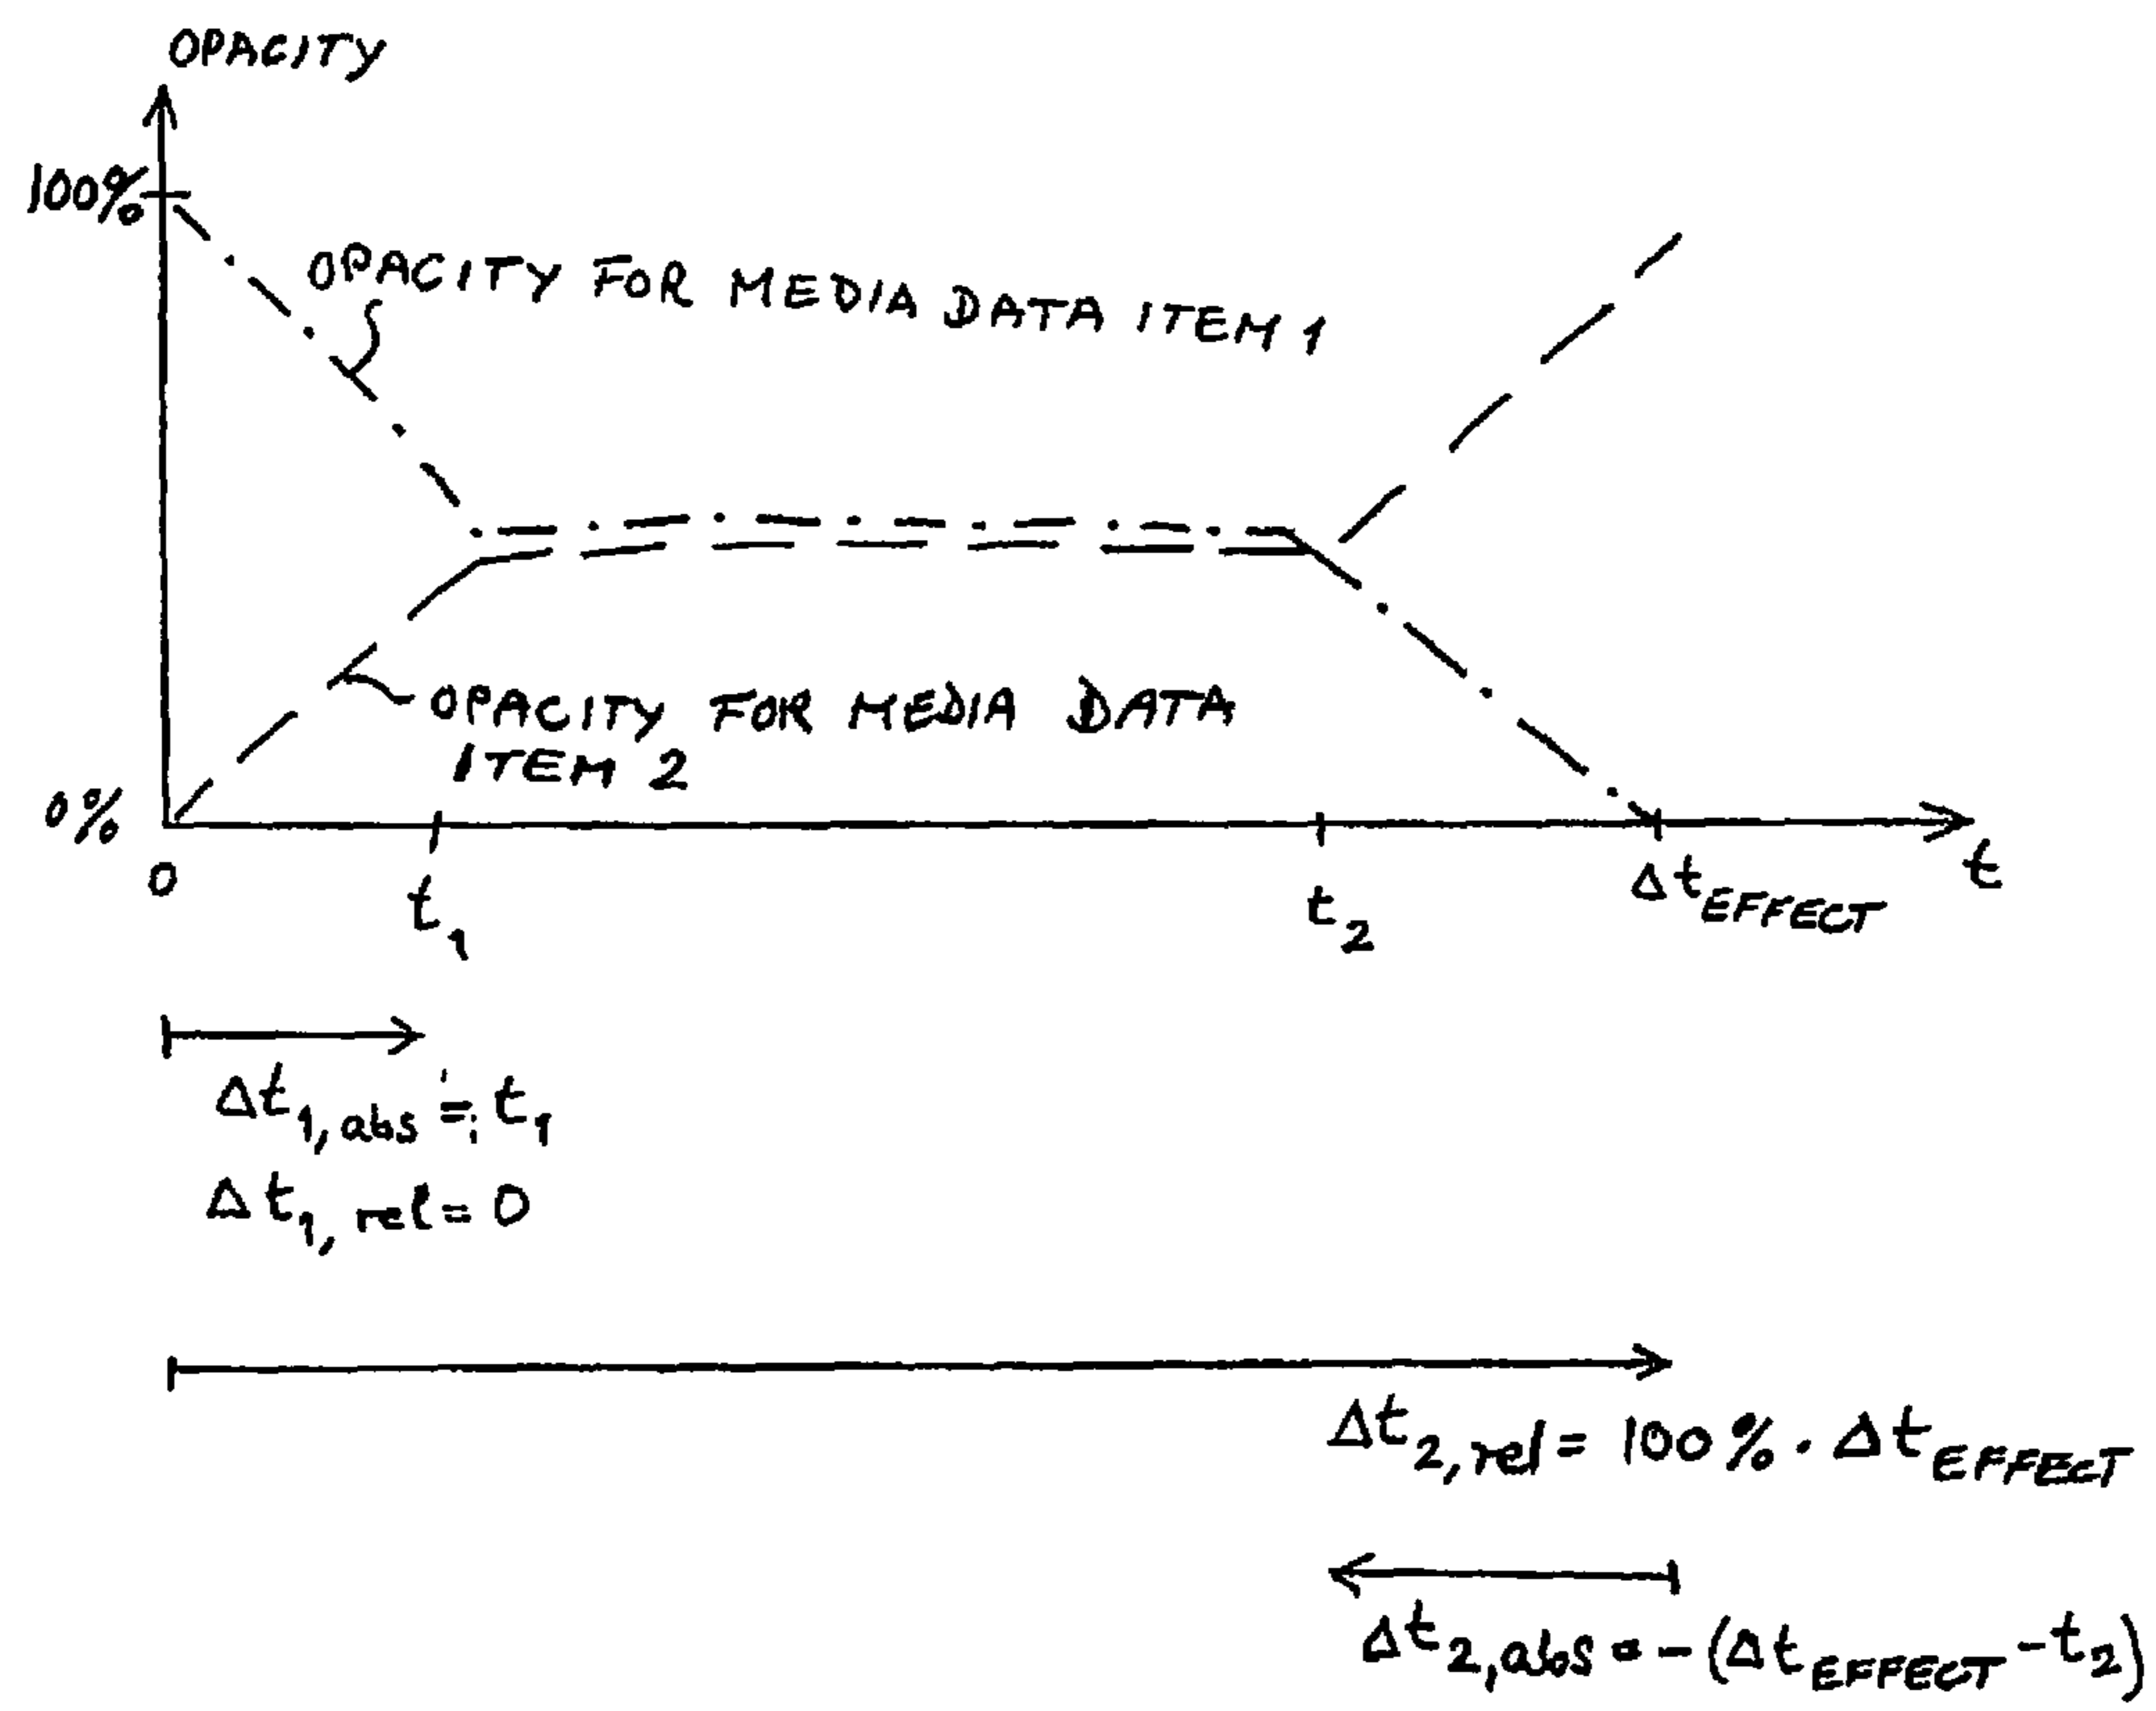 OPACITY
100%
OPACITY FOR MEDIA DATA ITEM 1
OPACITY FOR MEDIA DATA
ITEM 2
0%
0
t₁
t₂
Δt EFFECT
t
Δt₁,abs = t₁
Δt₁,rel = 0
Δt₂,rel = 100% · Δt EFFECT
Δt₂,abs = -(Δt EFFECT - t₂)